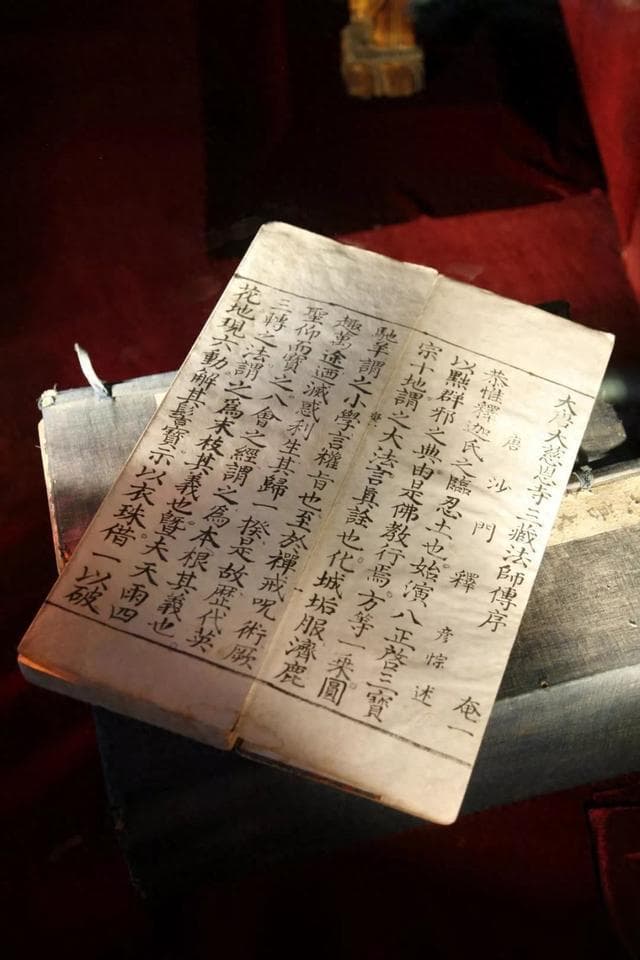 大唐大慈恩寺三藏法師傳序 奄一
唐 沙 門 釋 彥 悰 述
恭惟釋迦氏之臨忍土也始演八正啓三寶
以點群邪之典由是佛教行焉方等一乘圓
宗十地謂之大法言真詮也化城垢服濟鹿
馳羊謂之小學言權旨也至於禪戒呪術厥
趣萬途迺滅惑利生其歸一揆是故歷代英
聖仰而寶之八會之經謂之為本根其義也
三轉之法謂之為末枝其義也暨夫天雨四
花地現六動解其髻寶示以衣珠借一以破